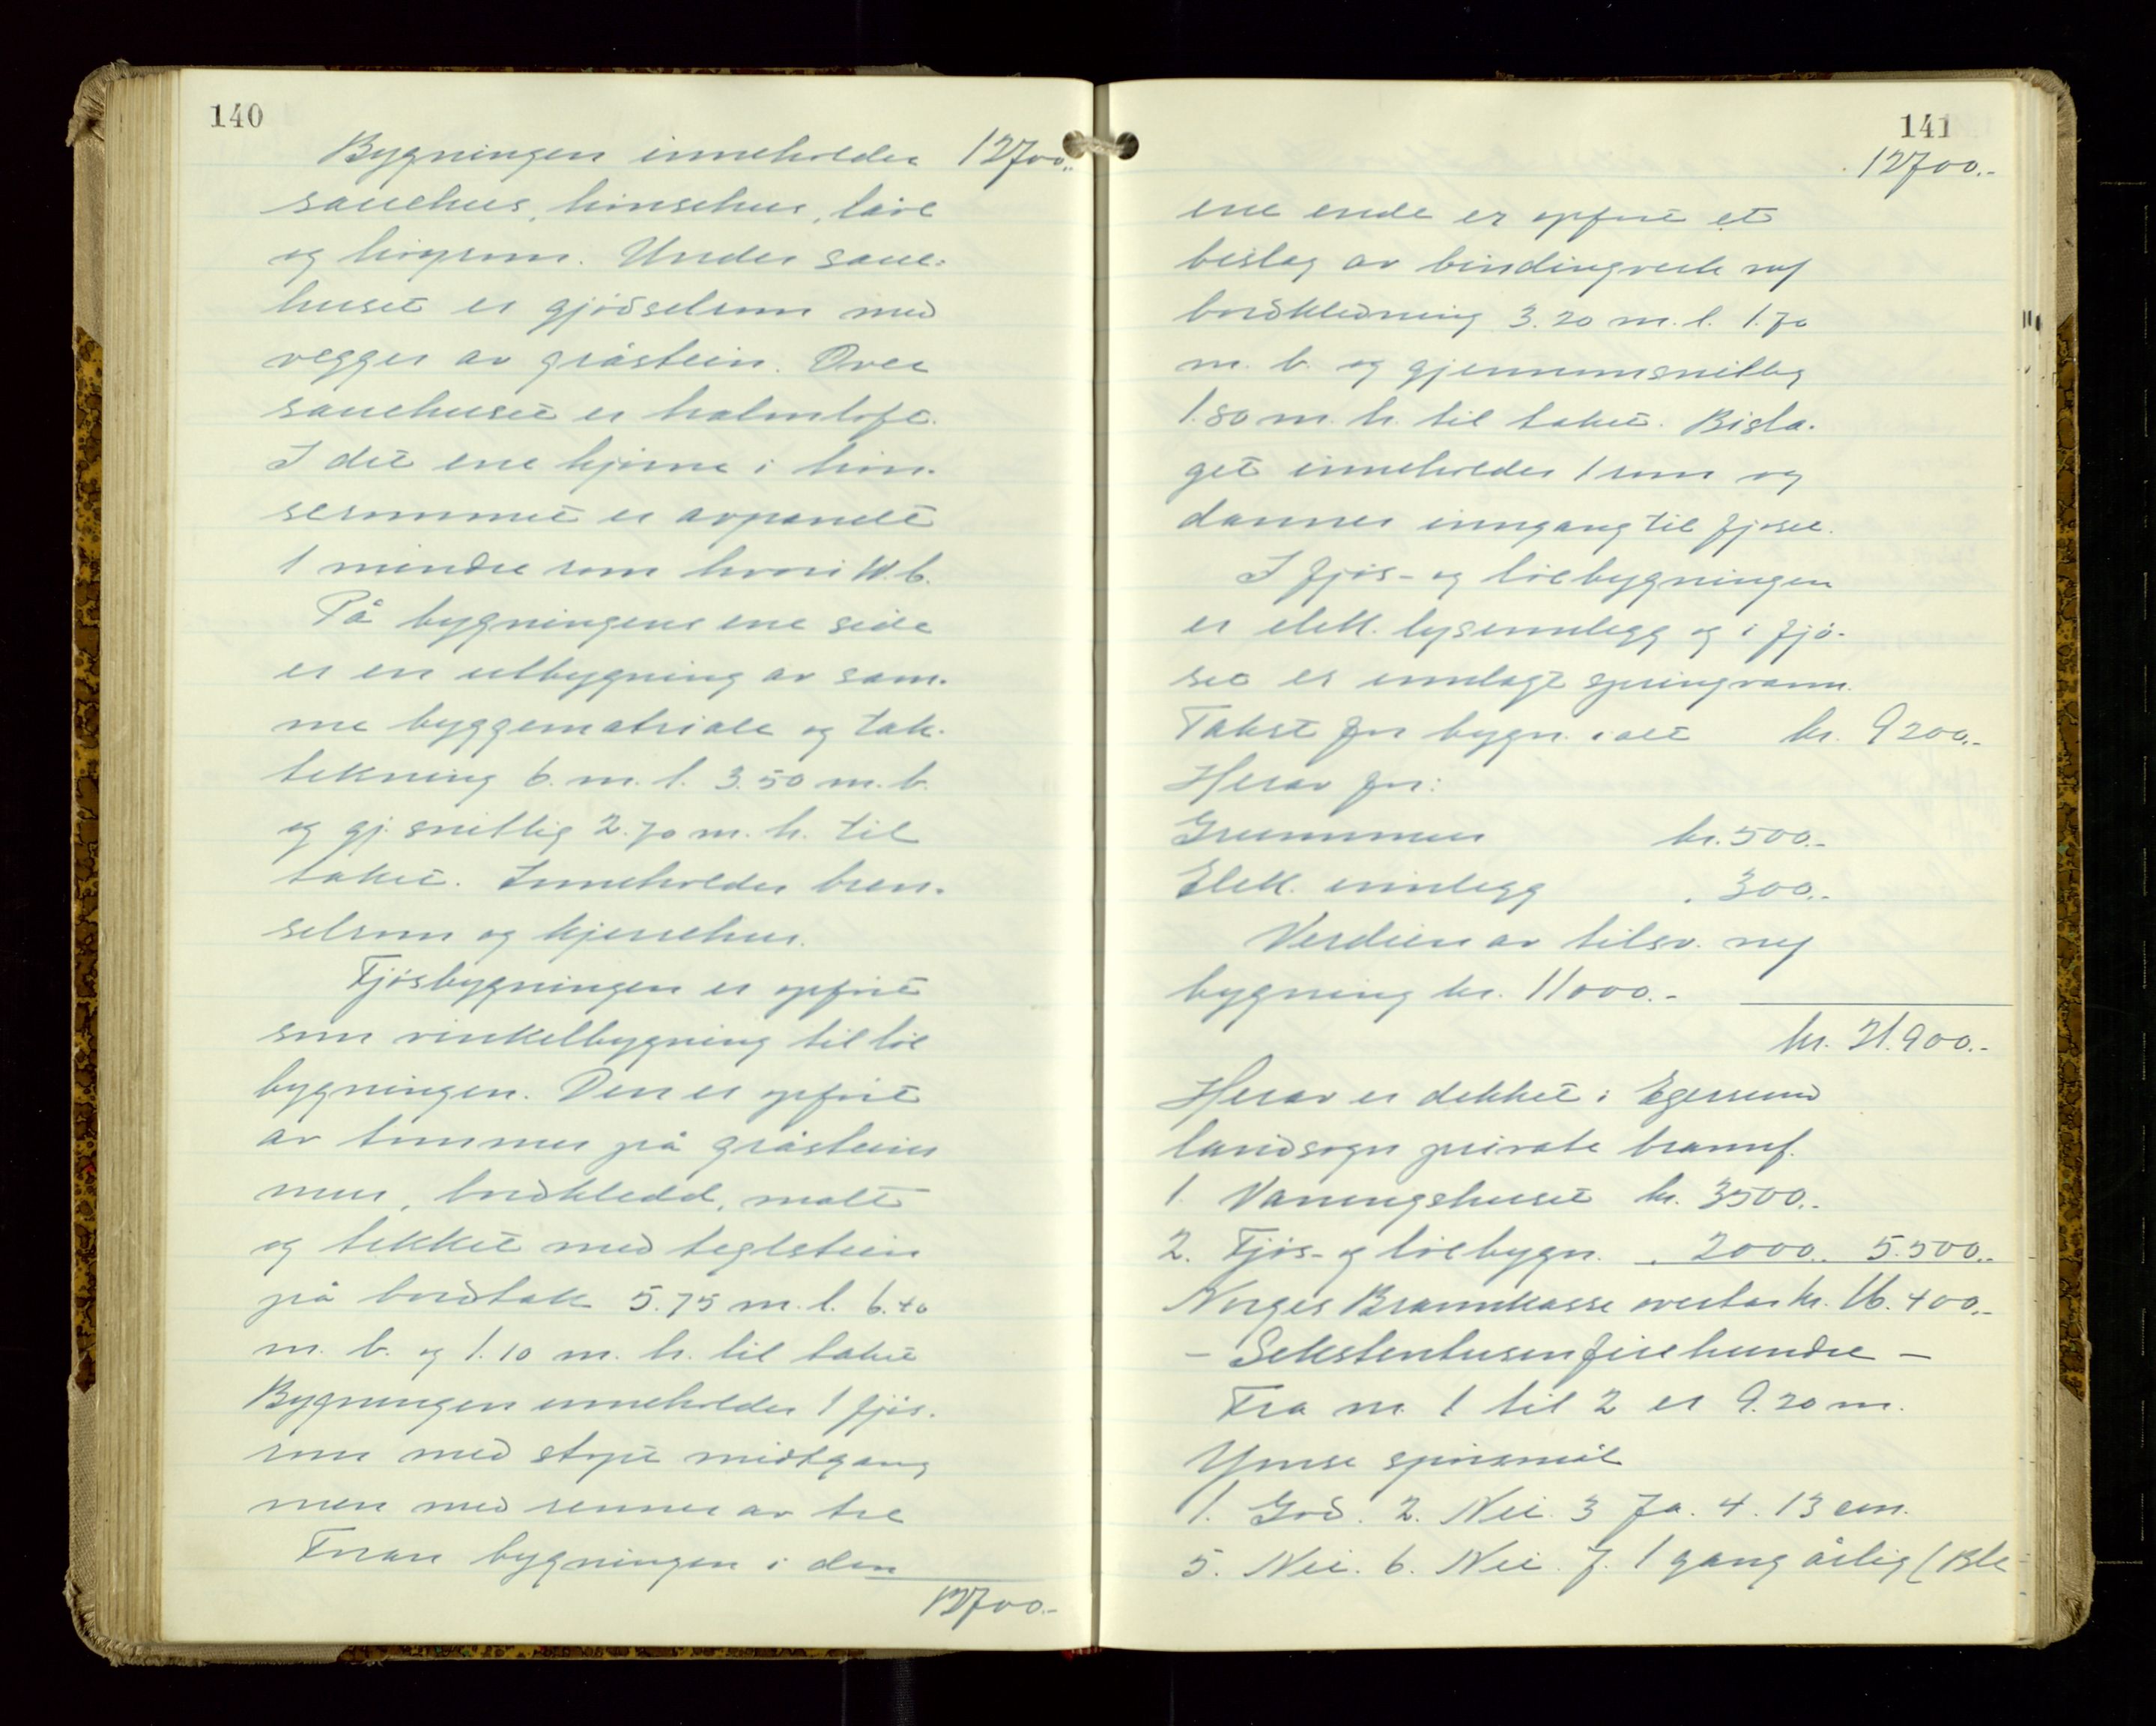 140
Bygningen inneholder 12700.-
sauehus, hönsehus, låve
og höyrom. Under saue-
huset er gjödselrom med
vegger av gråstein. Over
sauehuset er halmloft.
I det ene hjörne i hön-
serommet er avpanelt
1 mindre rom hvori W.b.
På bygningens ene side
er en utbygning av sam-
me byggematriale og tak-
tekning 6. m. l. 3.50 m. b.
og gj. snittlig 2.70 m. h. til
taket. Inneholder bren-
selrom og kjerrehus.
Fjösbygningen er opfört
som vinkelbygning til löe
bygningen. Den er opfört
av tömmer på gråsteins
mur, bordkledd, malt
og tekket med teglstein
på bordtak 5.75 m. l. 6.40
m. b. og 1.10 m. h. til taket
Bygningen inneholder 1 fjös-
rom med stöpt midtgang
men med renner av tre
Foran bygningen i den
12700.-
141
12700.-
ene ende er opfört et
bislag av bindingverk m/
bordkledning 3.20 m. l. 1.70
m. b. og gjennomsnittlig
1.80 m. h. til taket. Bisla-
get inneholder 1 rom og
danner inngang til fjöset.
I fjös- og löebygningen
er elek. lysinnlegg og i fjö-
set er innlagt springvann.
Takst for bygn. i alt kr. 9200.-
Herav for:
Grunnmur kr. 500.-
Elek. innlegg " 300.-
Verdien av tilsv. ny
bygning kr. 11000.-
kr. 21.900.-
Herav er dekket i Egersund
landsogn private brannf.
1. Vaningshuset kr. 3500.-
2. Fjös- og löebygn. " 2000.- 5.500.-
Norges Brannkasse overtar kr. 16.400.-
- Sekstentusenfirehundre -
Fra nr. 1 til 2 er 9.20 m.
Ymse spörsmål
1. God. 2. Nei. 3 Ja. 4. 13 cm.
5. Nei. 6. Nei. 7. 1 gang årlig (Ble